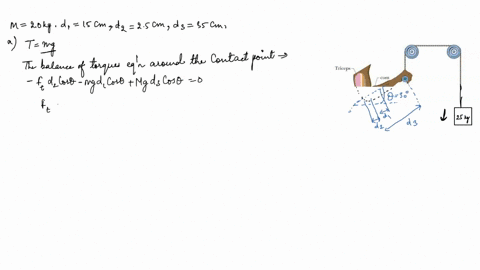 M = 20kg. d₁ = 15 Cm, d₂ = 2.5 Cm, d₃ = 35 Cm.
a) T = mg
The balance of torques eq'n around the Contact point →
- fₜ d₂ Cosθ - mg d₁ Cosθ + Mg d₃ Cosθ = 0
fₜ
Triceps
θ = 30°
d₁
d₂
d₃
25 kg